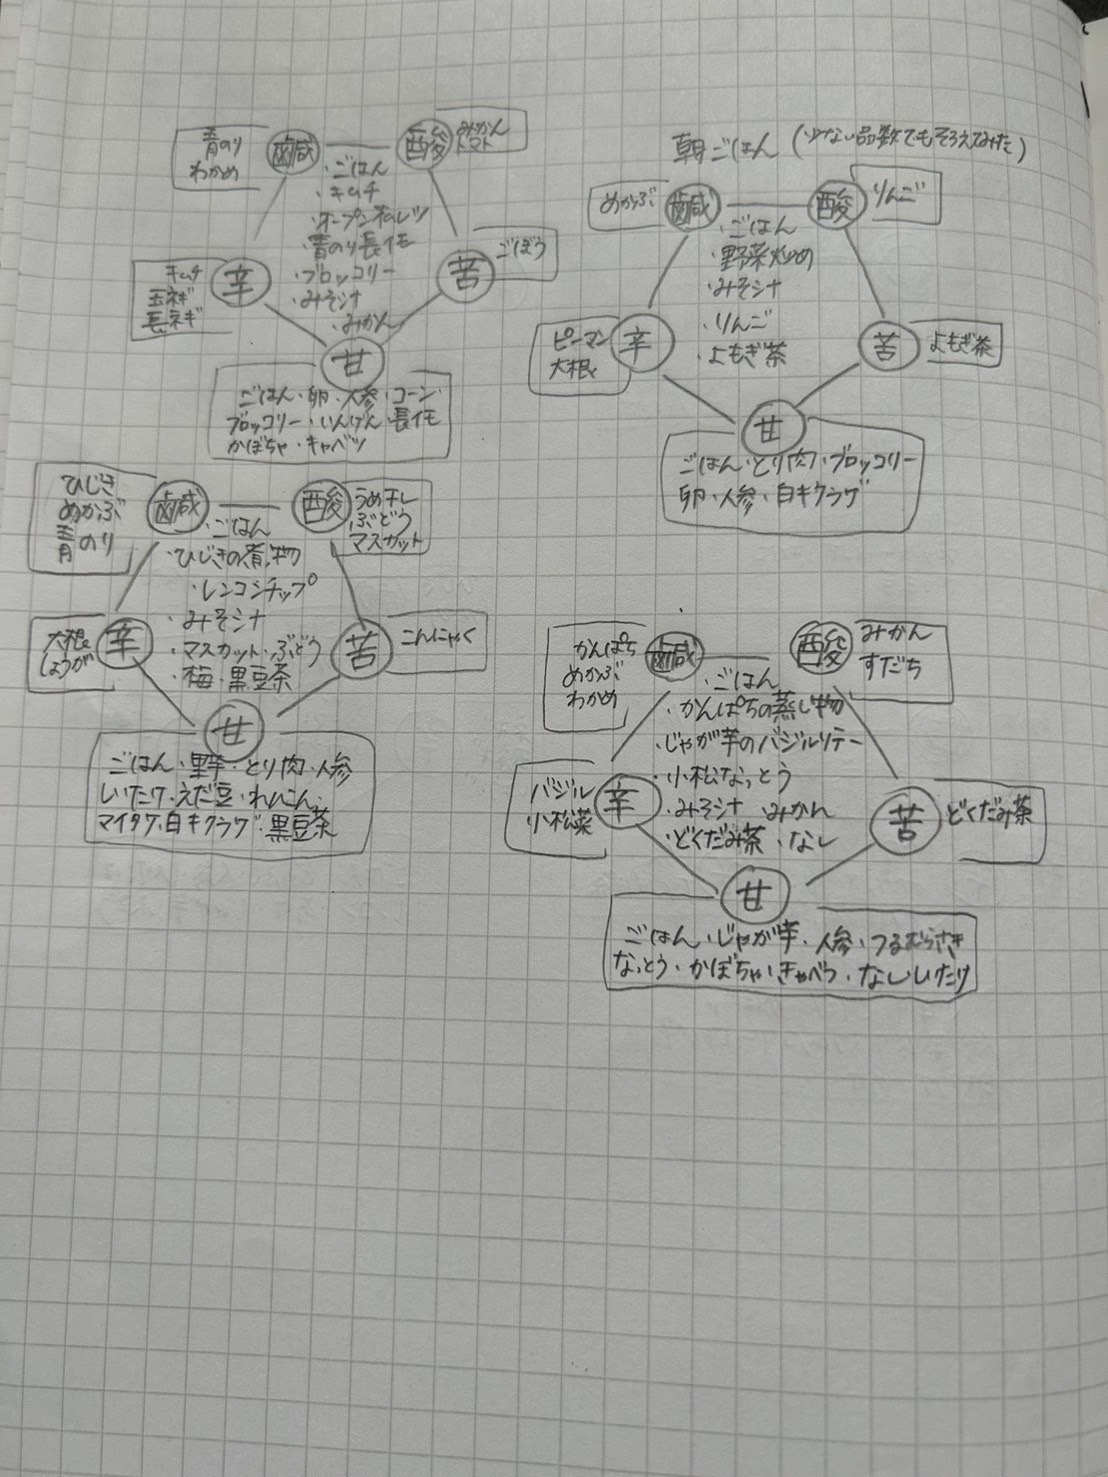 青のり
わかめ
鹹
酸
みかん
トマト
・ごはん
・キムチ
・オープンオムレツ
・青のり長イモ
・ブロッコリー
・みそシナ
・みかん
辛
キムチ
玉ネギ
長ネギ
苦
ごぼう
甘
ごはん・卵・人参・コーン・
ブロッコリー・いんげん・長イモ
かぼちゃ・キャベツ
朝ごはん (少ない品数でもそろえてみた)
めかぶ
鹹
酸
りんご
・ごはん
・野菜炒め
・みそシナ
・りんご
・よもぎ茶
ピーマン
大根
辛
苦
よもぎ茶
甘
ごはん・とり肉・ブロッコリー
卵・人参・白キクラゲ
ひじき
めかぶ
青のり
鹹
酸
うめ干し
ぶどう
マスカット
・ごはん
・ひじきの煮物
・レンコンチップ
・みそシナ
・マスカット・ぶどう
・梅・黒豆茶
大根
しょうが
辛
苦
こんにゃく
甘
ごはん・里芋・とり肉・人参
しいたけ・えだ豆・れんこん・
マイタケ・白キクラゲ・黒豆茶
かんぱち
めかぶ
わかめ
鹹
酸
みかん
すだち
・ごはん
・かんぱちの蒸し物
・じゃが芋のバジルソテー
・小松なっとう
・みそシナ ・みかん
・どくだみ茶 ・なし
バジル
小松菜
辛
苦
どくだみ茶
甘
ごはん・じゃが芋・人参・つるむらさき
なっとう・かぼちゃ・きゃべつ・なし しいたけ